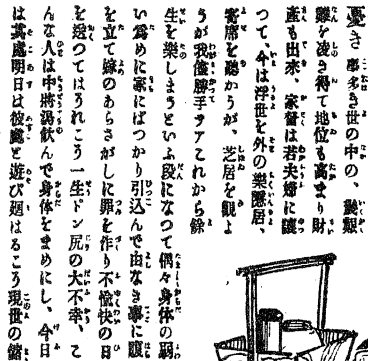 憂き事多き世の中の、幾艱
難を凌ぎ得て地位も高まり財
産も出來、家督は若夫婦に讓
つて、今は浮世を外の樂隱居、
寄席を聽かうが、芝居を觀よ
うが我儘勝手サアこれから餘
生を樂しまうといふ段になつて偶々身体の弱
い爲めに家にばつかり引込んで由なき事に腹
を立て嫁のあらさがしに罪を作り不愉快の日
を送つてはそれこそ一生ドン尻の大不幸、こ
んな人は中將湯飮んで身体をまめにし、今日
は其處明日は彼處と遊び廻はるこそ現世の儲